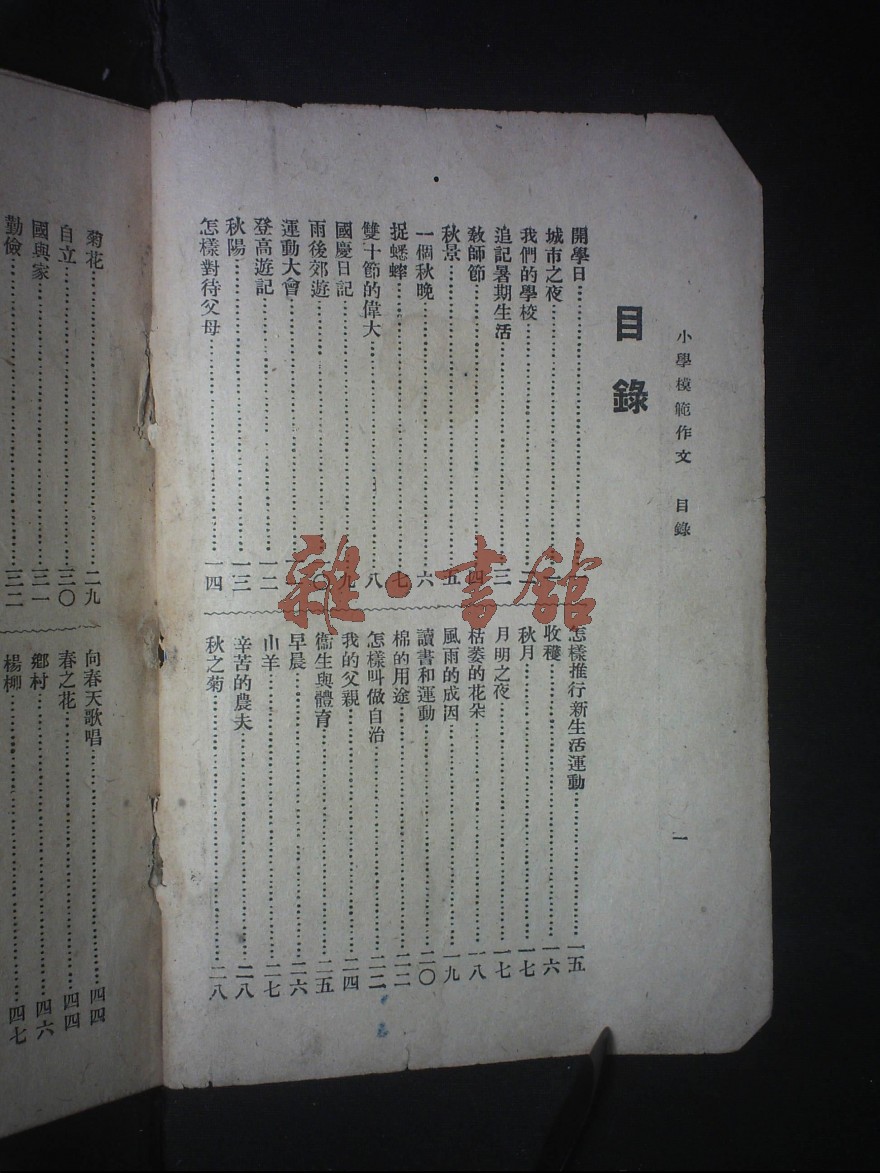 小學模範作文　目錄
一
目錄
開學日
城市之夜
我們的學校……二
追記暑期生活……三
教師節……四
秋景……五
一個秋晚……六
捉蟋蟀……七
雙十節的偉大……八
國慶日記……九
雨後郊遊……一〇
運動大會
登高遊記……一二
秋陽……一三
怎樣對待父母……一四
怎樣推行新生活運動……一五
收穫……一六
秋月……一七
月明之夜……一七
枯萎的花朵……一八
風雨的成因……一九
讀書和運動……二〇
棉的用途……二二
怎樣叫做自治……二二
我的父親……二四
衞生與體育……二五
早晨……二六
山羊……二七
辛苦的農夫……二八
秋之菊……二八
菊花……二九
自立……三〇
國與家……三一
勤儉……三二
向春天歌唱……四四
春之花……四四
鄉村……四六
楊柳……四七
雜·書館